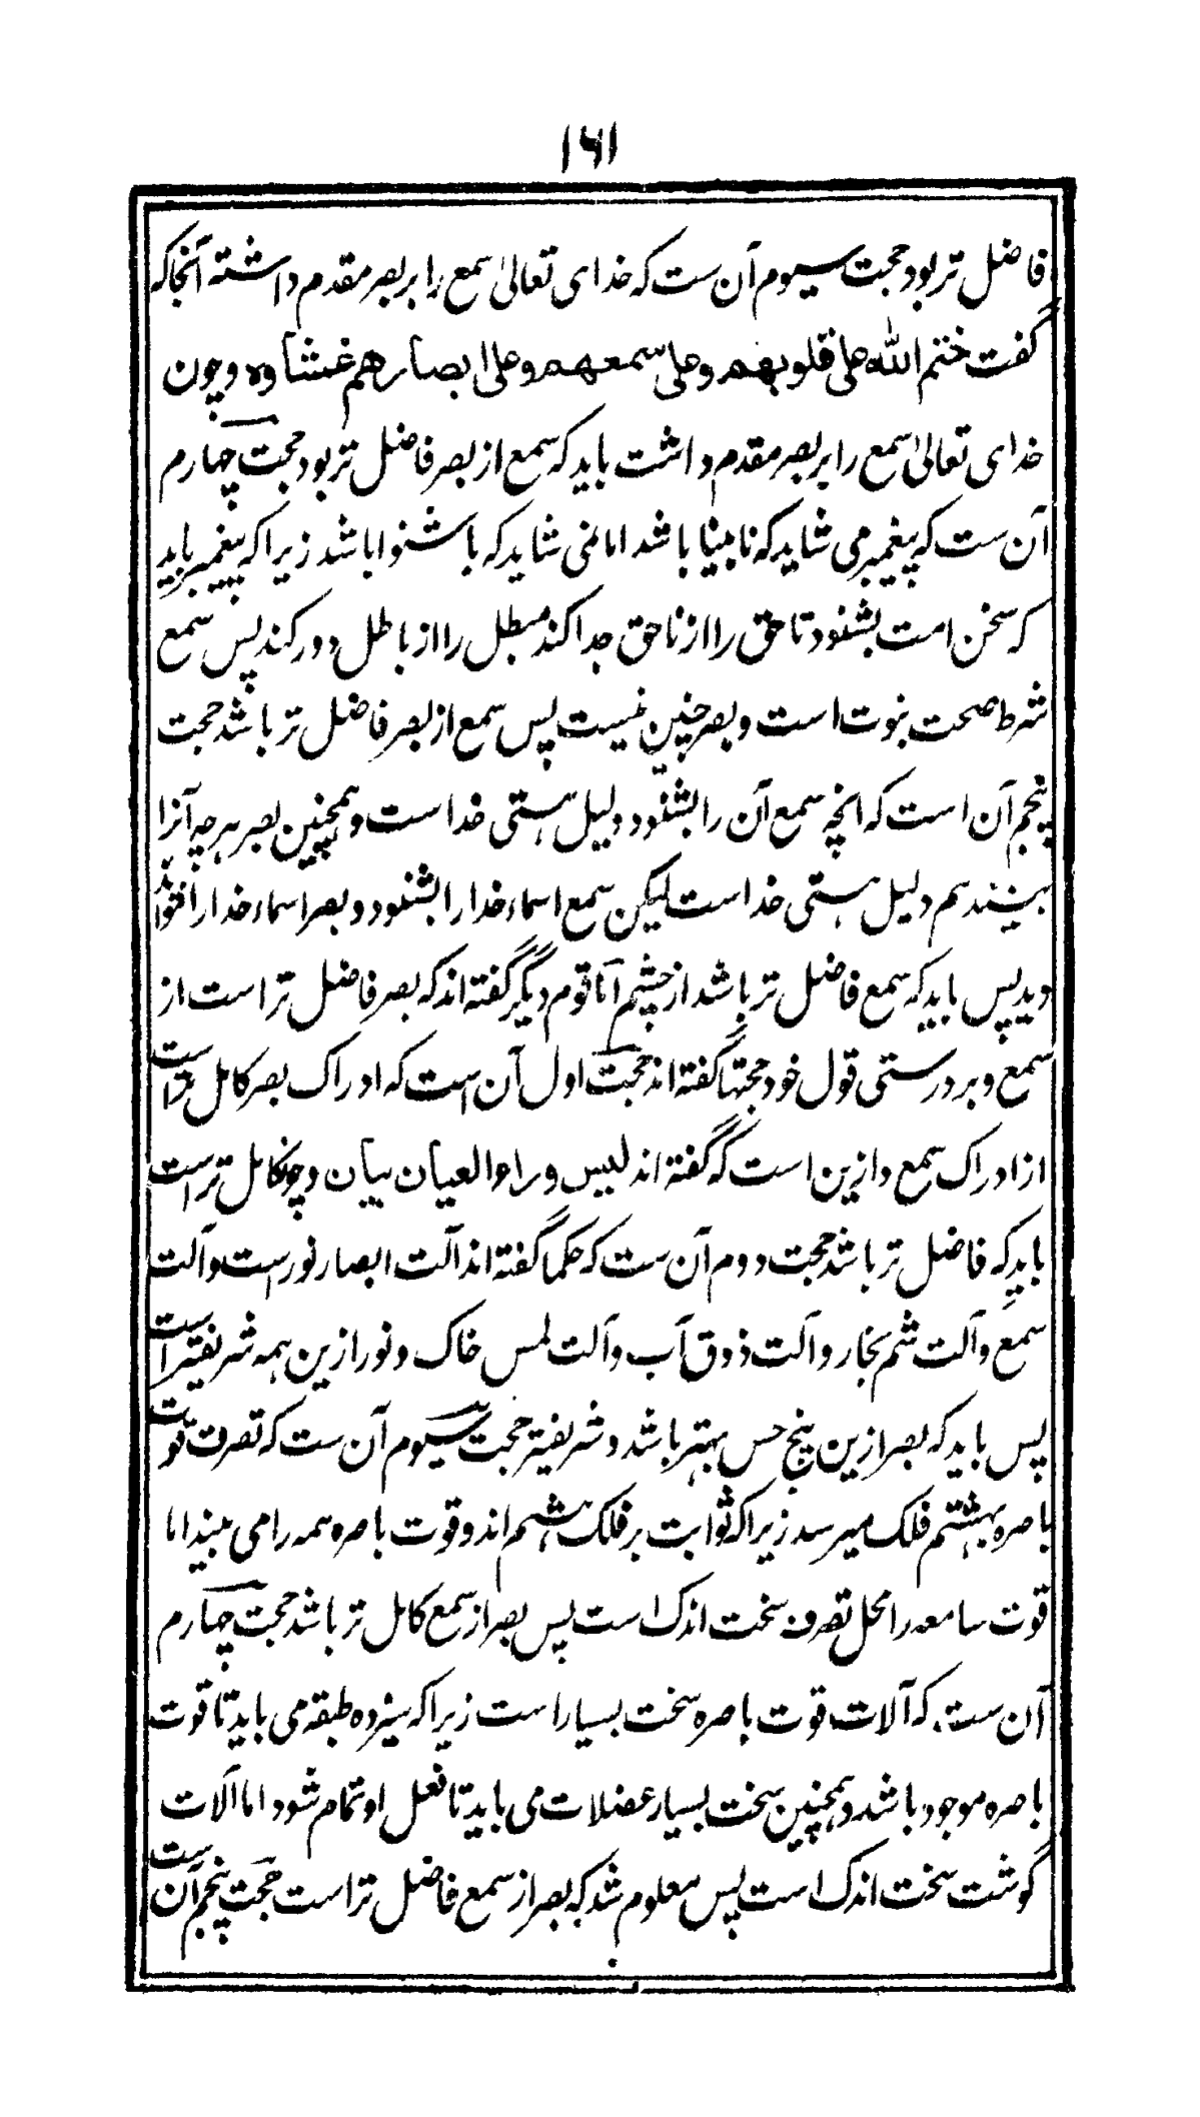 ۱۶۱
فاضل تر بود حجت سیوم آن ست که خدای تعالیٰ سمع را بر بصر مقدم داشته آنجا که
گفت ختم الله علی قلوبهم وعلی سمعهم وعلی ابصارهم غشاوه وچون
خدای تعالیٰ سمع را بر بصر مقدم داشت باید که سمع از بصر فاضل تر بود حجت چهارم
آن ست که پیغمبر می شاید که نابینا باشد اما نمی شاید که ناشنوا باشد زیرا که پیغمبر باید
که سخن امت بشنود تا حق را از ناحق جدا کند مبطل را از باطل دور کند پس سمع
شرط صحت نبوت است و بصر چنین نیست پس سمع از بصر فاضل تر باشد حجت
پنجم آن است که انچه سمع آن را بشنود دلیل هستی خدا است و همچنین بصر هر چه آنرا
ببیند هم دلیل هستی خدا است لیکن سمع اسماء خدا را بشنود و بصر اسماء خدا را نتواند
دید پس باید که سمع فاضل تر باشد از چشم اما قوم دیگر گفته اند که بصر فاضل تر است از
سمع و بر درستی قول خود حجتها گفته اند حجت اول آن است که ادراک بصر کامل تر است
از ادراک سمع و ازین است که گفته اند لیس وراء العیان بیان و چونکامل تر است
باید که فاضل تر باشد حجت دوم آن ست که حکما گفته اند آلت ابصار نور است و آلت
سمع و آلت شم بخار و آلت ذوق آب و آلت لمس خاک و نور ازین همه شریفتر است
پس باید که بصر ازین پنج حس بهتر باشد و شریفتر حجت سیوم آن ست که تصرف قوت
باصره بهشتم فلک میرسد زیرا که ثوابت بر فلک هشتم اند و قوت باصره همه را می بیند اما
قوت سامعه را محل تصرف سخت اندک است پس بصر از سمع کامل تر باشد حجت چهارم
آن ست که آلات قوت باصره سخت بسیار است زیرا که سیزده طبقه می باید تا قوت
باصره موجود باشد و همچنین سخت بسیار عضلات می باید تا فعل او تمام شود اما آلات
گوشت سخت اندک است پس معلوم شد که بصر از سمع فاضل تر است حجت پنجم آن است